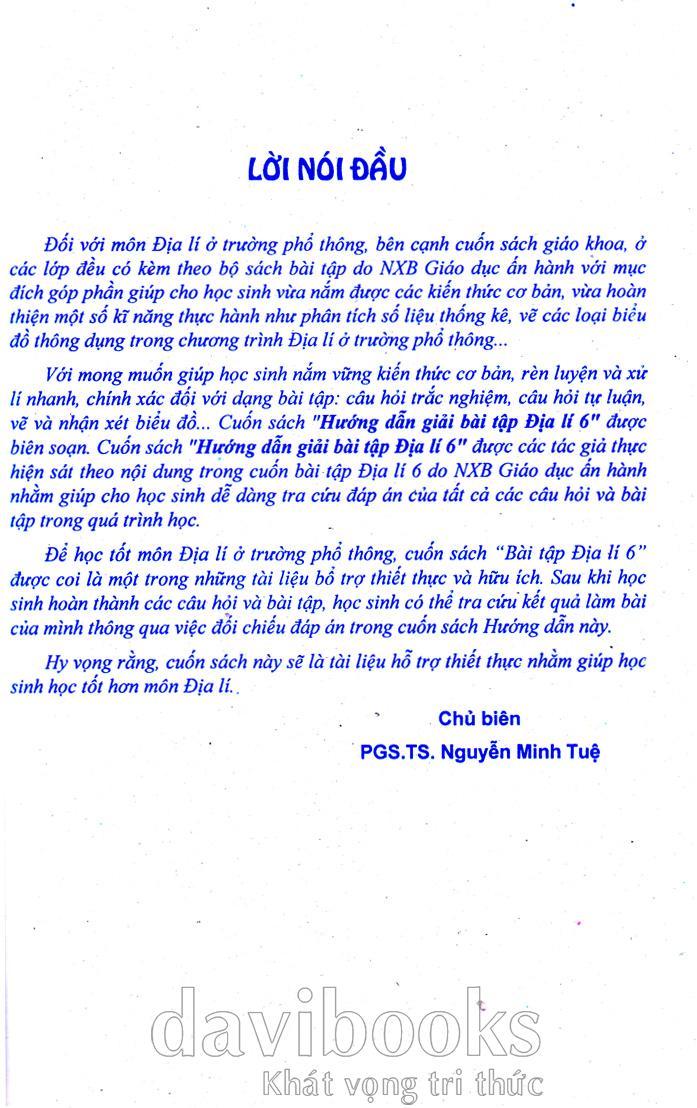 LỜI NÓI ĐẦU
Đối với môn Địa lí ở trường phổ thông, bên cạnh cuốn sách giáo khoa, ở
các lớp đều có kèm theo bộ sách bài tập do NXB Giáo dục ấn hành với mục
đích góp phần giúp cho học sinh vừa nắm được các kiến thức cơ bản, vừa hoàn
thiện một số kĩ năng thực hành như phân tích số liệu thống kê, vẽ các loại biểu
đồ thông dụng trong chương trình Địa lí ở trường phổ thông...
Với mong muốn giúp học sinh nắm vững kiến thức cơ bản, rèn luyện và xử
lí nhanh, chính xác đối với dạng bài tập: câu hỏi trắc nghiệm, câu hỏi tự luận,
vẽ và nhận xét biểu đồ... Cuốn sách "Hướng dẫn giải bài tập Địa lí 6" được
biên soạn. Cuốn sách "Hướng dẫn giải bài tập Địa lí 6" được các tác giả thực
hiện sát theo nội dung trong cuốn bài tập Địa lí 6 do NXB Giáo dục ấn hành
nhằm giúp cho học sinh dễ dàng tra cứu đáp án của tất cả các câu hỏi và bài
tập trong quá trình học.
Để học tốt môn Địa lí ở trường phổ thông, cuốn sách “Bài tập Địa lí 6”
được coi là một trong những tài liệu bổ trợ thiết thực và hữu ích. Sau khi học
sinh hoàn thành các câu hỏi và bài tập, học sinh có thể tra cứu kết quả làm bài
của mình thông qua việc đối chiếu đáp án trong cuốn sách Hướng dẫn này.
Hy vọng rằng, cuốn sách này sẽ là tài liệu hỗ trợ thiết thực nhằm giúp học
sinh học tốt hơn môn Địa lí.
Chủ biên
PGS.TS. Nguyễn Minh Tuệ
davibooks
Khát vọng tri thức